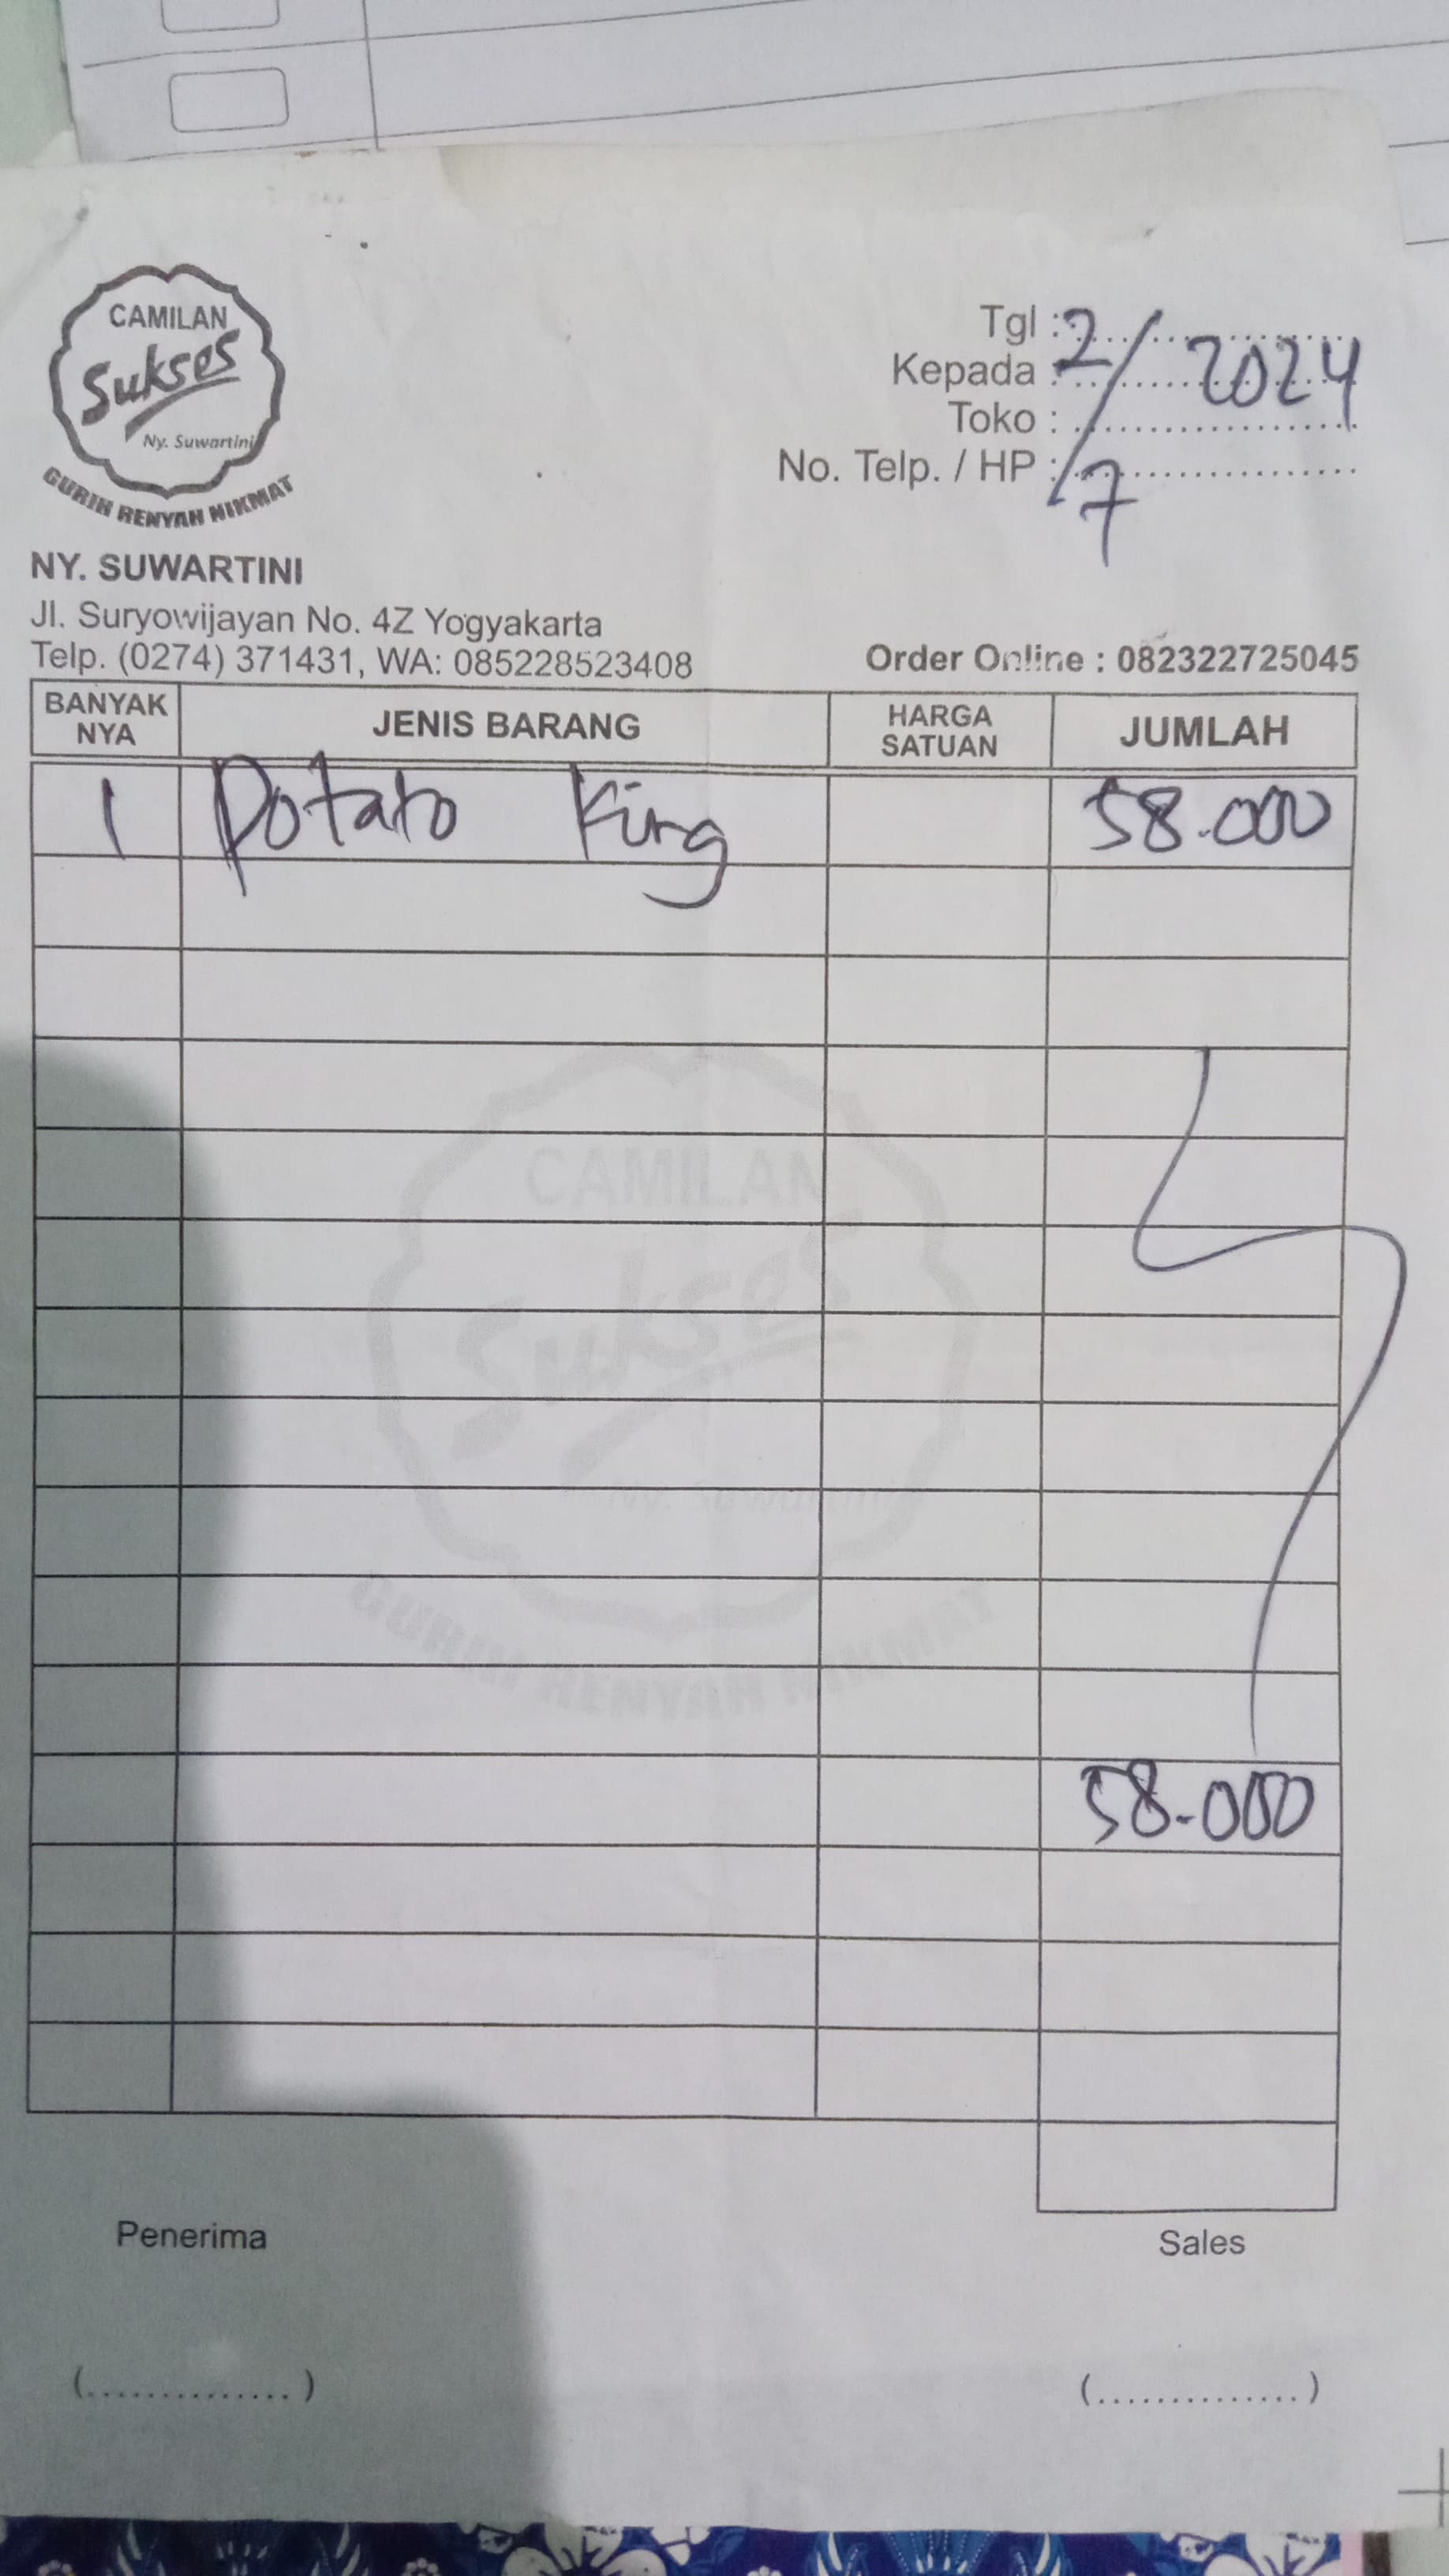 CAMILAN
Sukses
Ny. Suwartini
GURIH RENYAH NIKMAT
Tgl : 2/7 2024
Kepada :
Toko :
No. Telp. / HP :
NY. SUWARTINI
Jl. Suryowijayan No. 4Z Yogyakarta
Telp. (0274) 371431, WA: 085228523408
Order Online : 082322725045
BANYAK NYA JENIS BARANG HARGA SATUAN JUMLAH
1 Potato King 58.000
CAMILAN
Sukses
Ny. Suwartini
GURIH RENYAH NIKMAT
58.000
Penerima Sales
(..............) (..............)